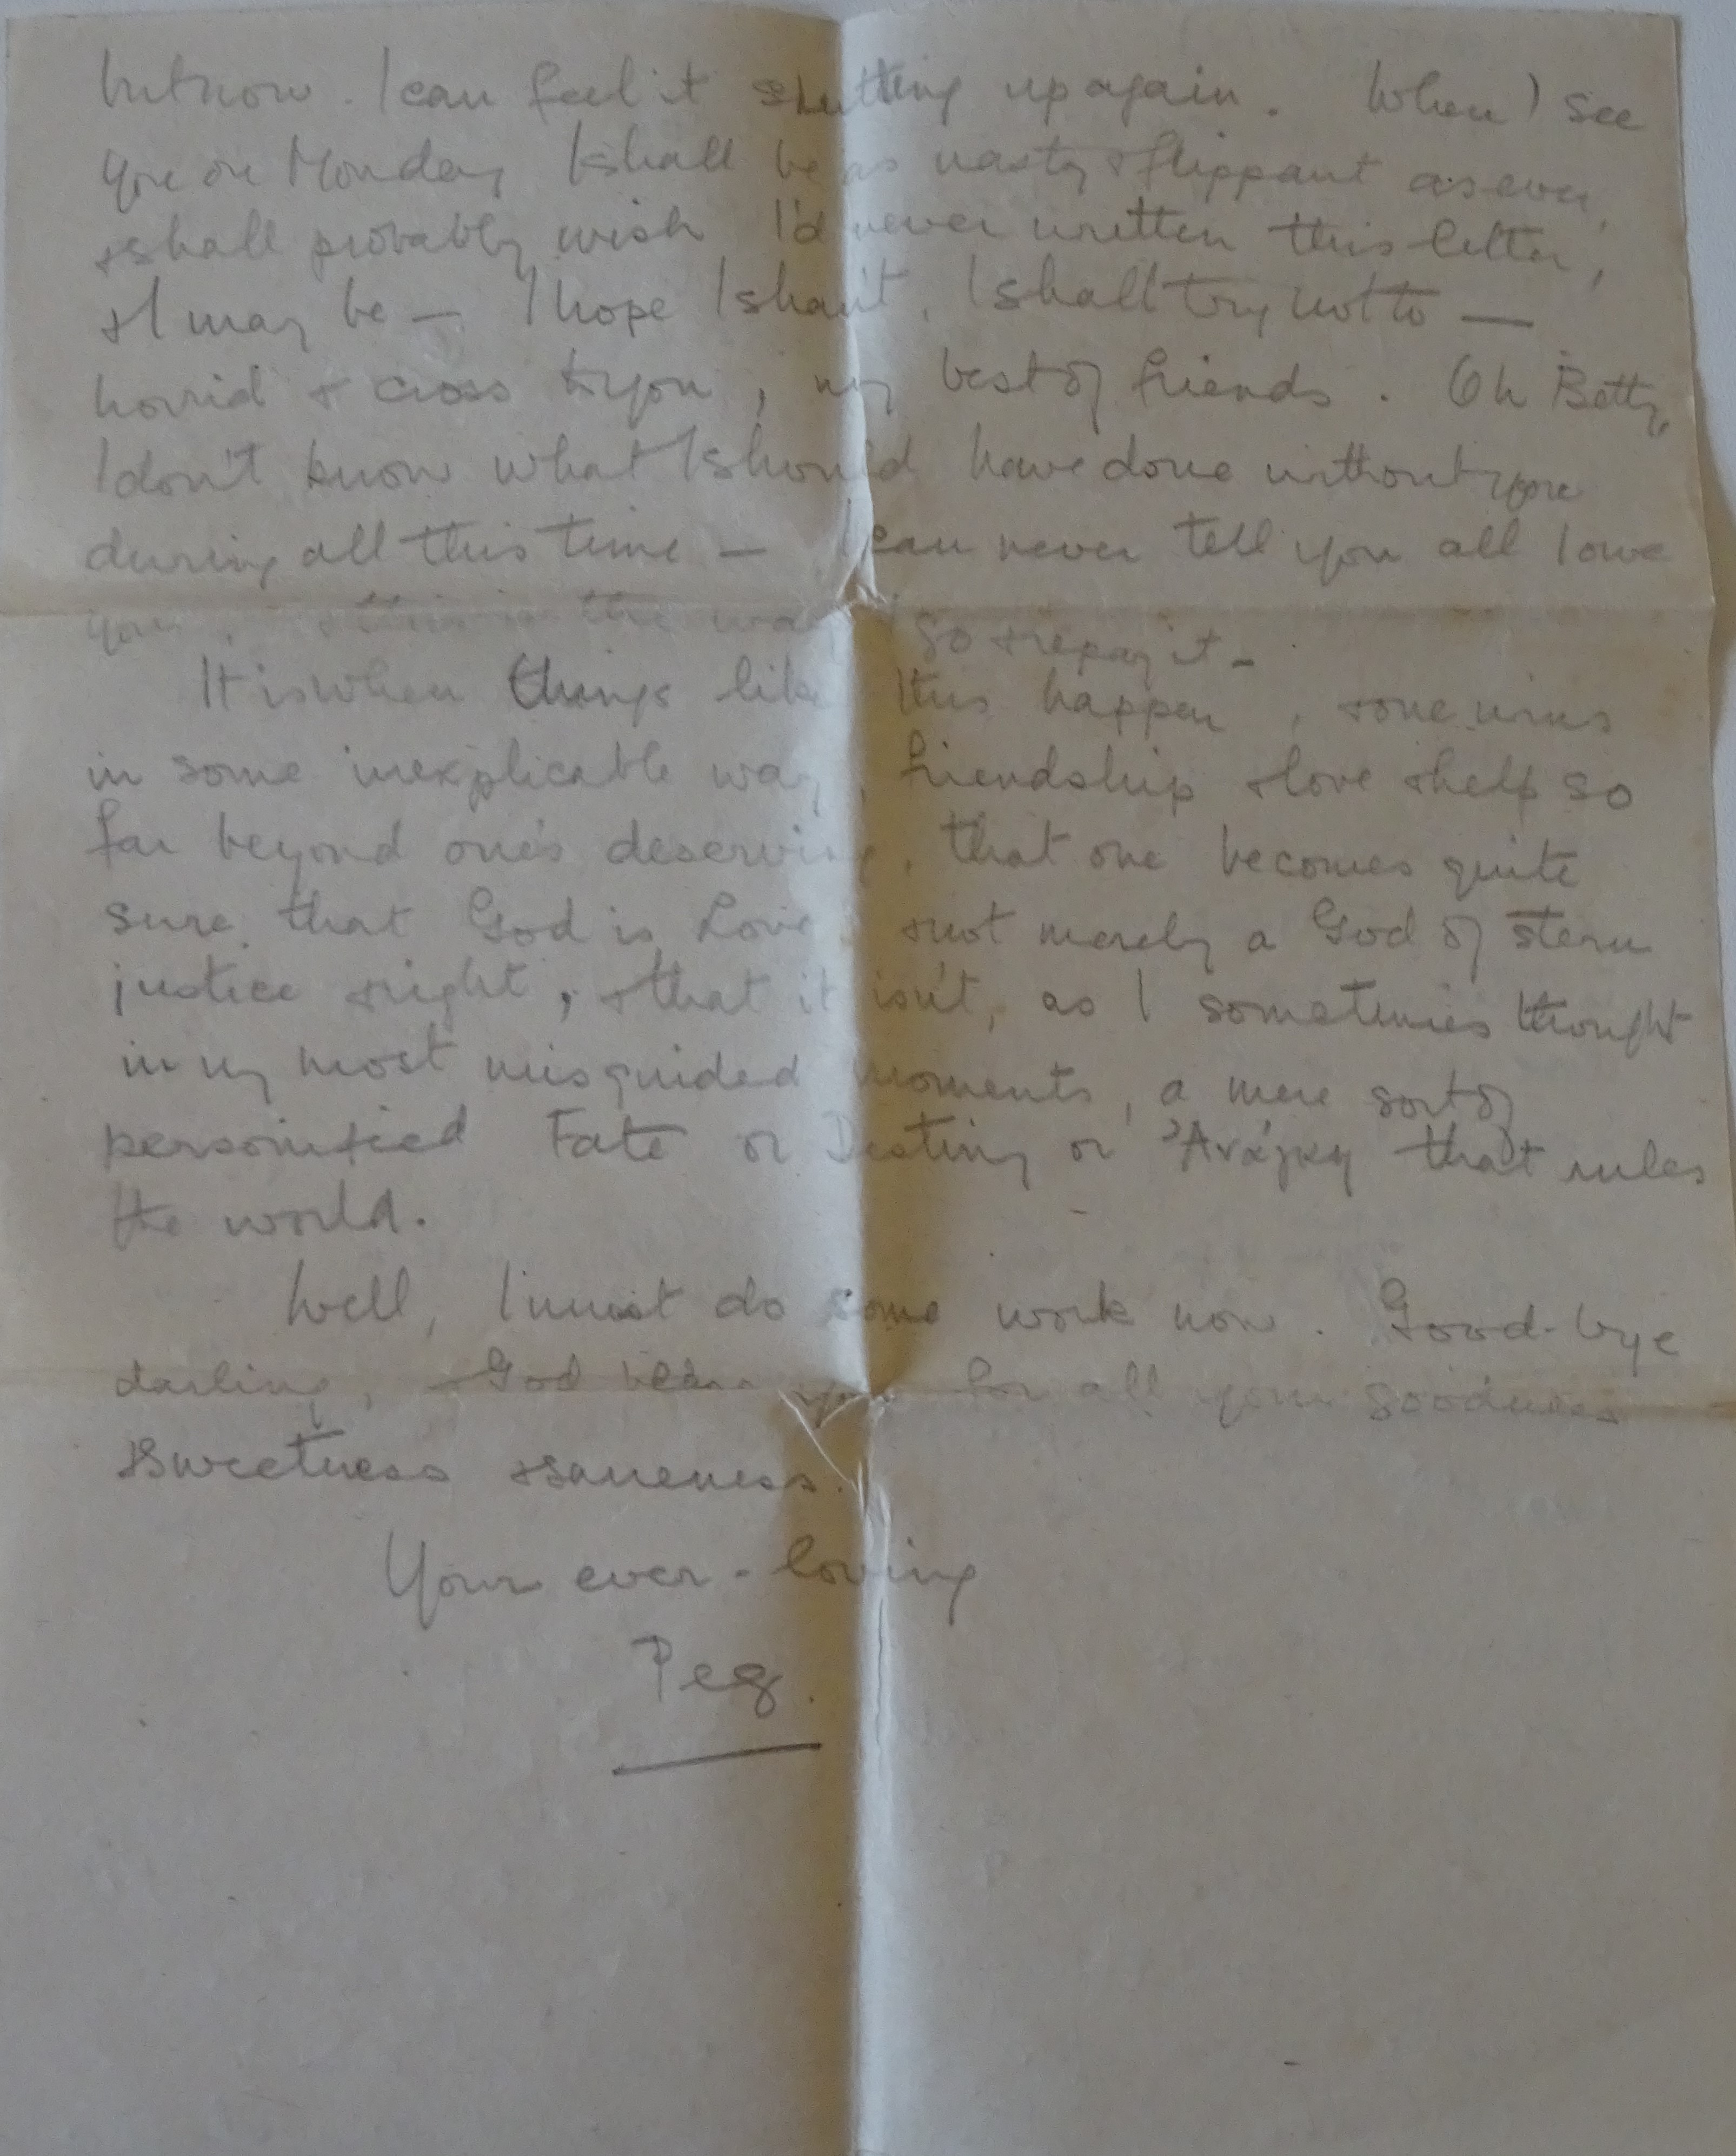 but now. I can feel it shutting up again. When I see
you on Monday I shall be as nasty & flippant as ever,
& shall probably wish I'd never written this letter,
& I may be — I hope I shan't, I shall try not to —
horrid & cross to you, my best of friends. Oh Betty,
I don't know what I should have done without you
during all this time — I can never tell you all I owe
you, & this is the way I go & repay it -
It is when things like this happen, & one wins
in some inexplicable way, friendship & love & help so
far beyond one's deserving, that one becomes quite
sure that God is Love & not merely a God of stern
justice & right, & that it isn't, as I sometimes thought
in my most misguided moments, a mere sort of
personified Fate or Destiny or Ἀνάγκη that rules
the world.
Well, I must do some work now. Good-bye
darling, & God bless you for all your goodness
& sweetness & saneness.
Your ever-loving
Peg.